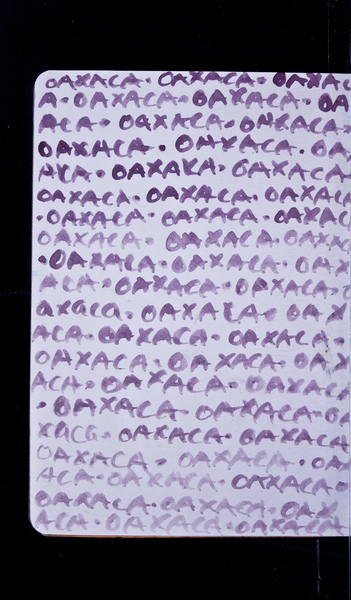 OAXACA · OAXACA · OAXAC
A · OAXACA · OAXACA · OA
ACA · OAXACA · OAXACA ·
OAXACA · OAXACA · OA
ACA · OAXACA · OAXACA
OAXACA · OAXACA · OAXACA
· OAXACA · OAXACA · OAXACA
OAXACA · OAXACA · OAXAC
· OAXACA · OAXACA · OAX
ACA · OAXACA · OAXACA ·
axaca · OAXACA · OAX
ACA · OAXACA · OAXACA ·
OAXACA · OAXACA · OAX
ACA · OAXACA · OAXACA
· OAXACA · OAXACA · O
xaca · OAXACA · OAXACA
OAXACA · OAXACA · OA
ACA · OAXACA · OAXACA ·
OAXACA · OAXACA · OAX
ACA · OAXACA · OAXACA